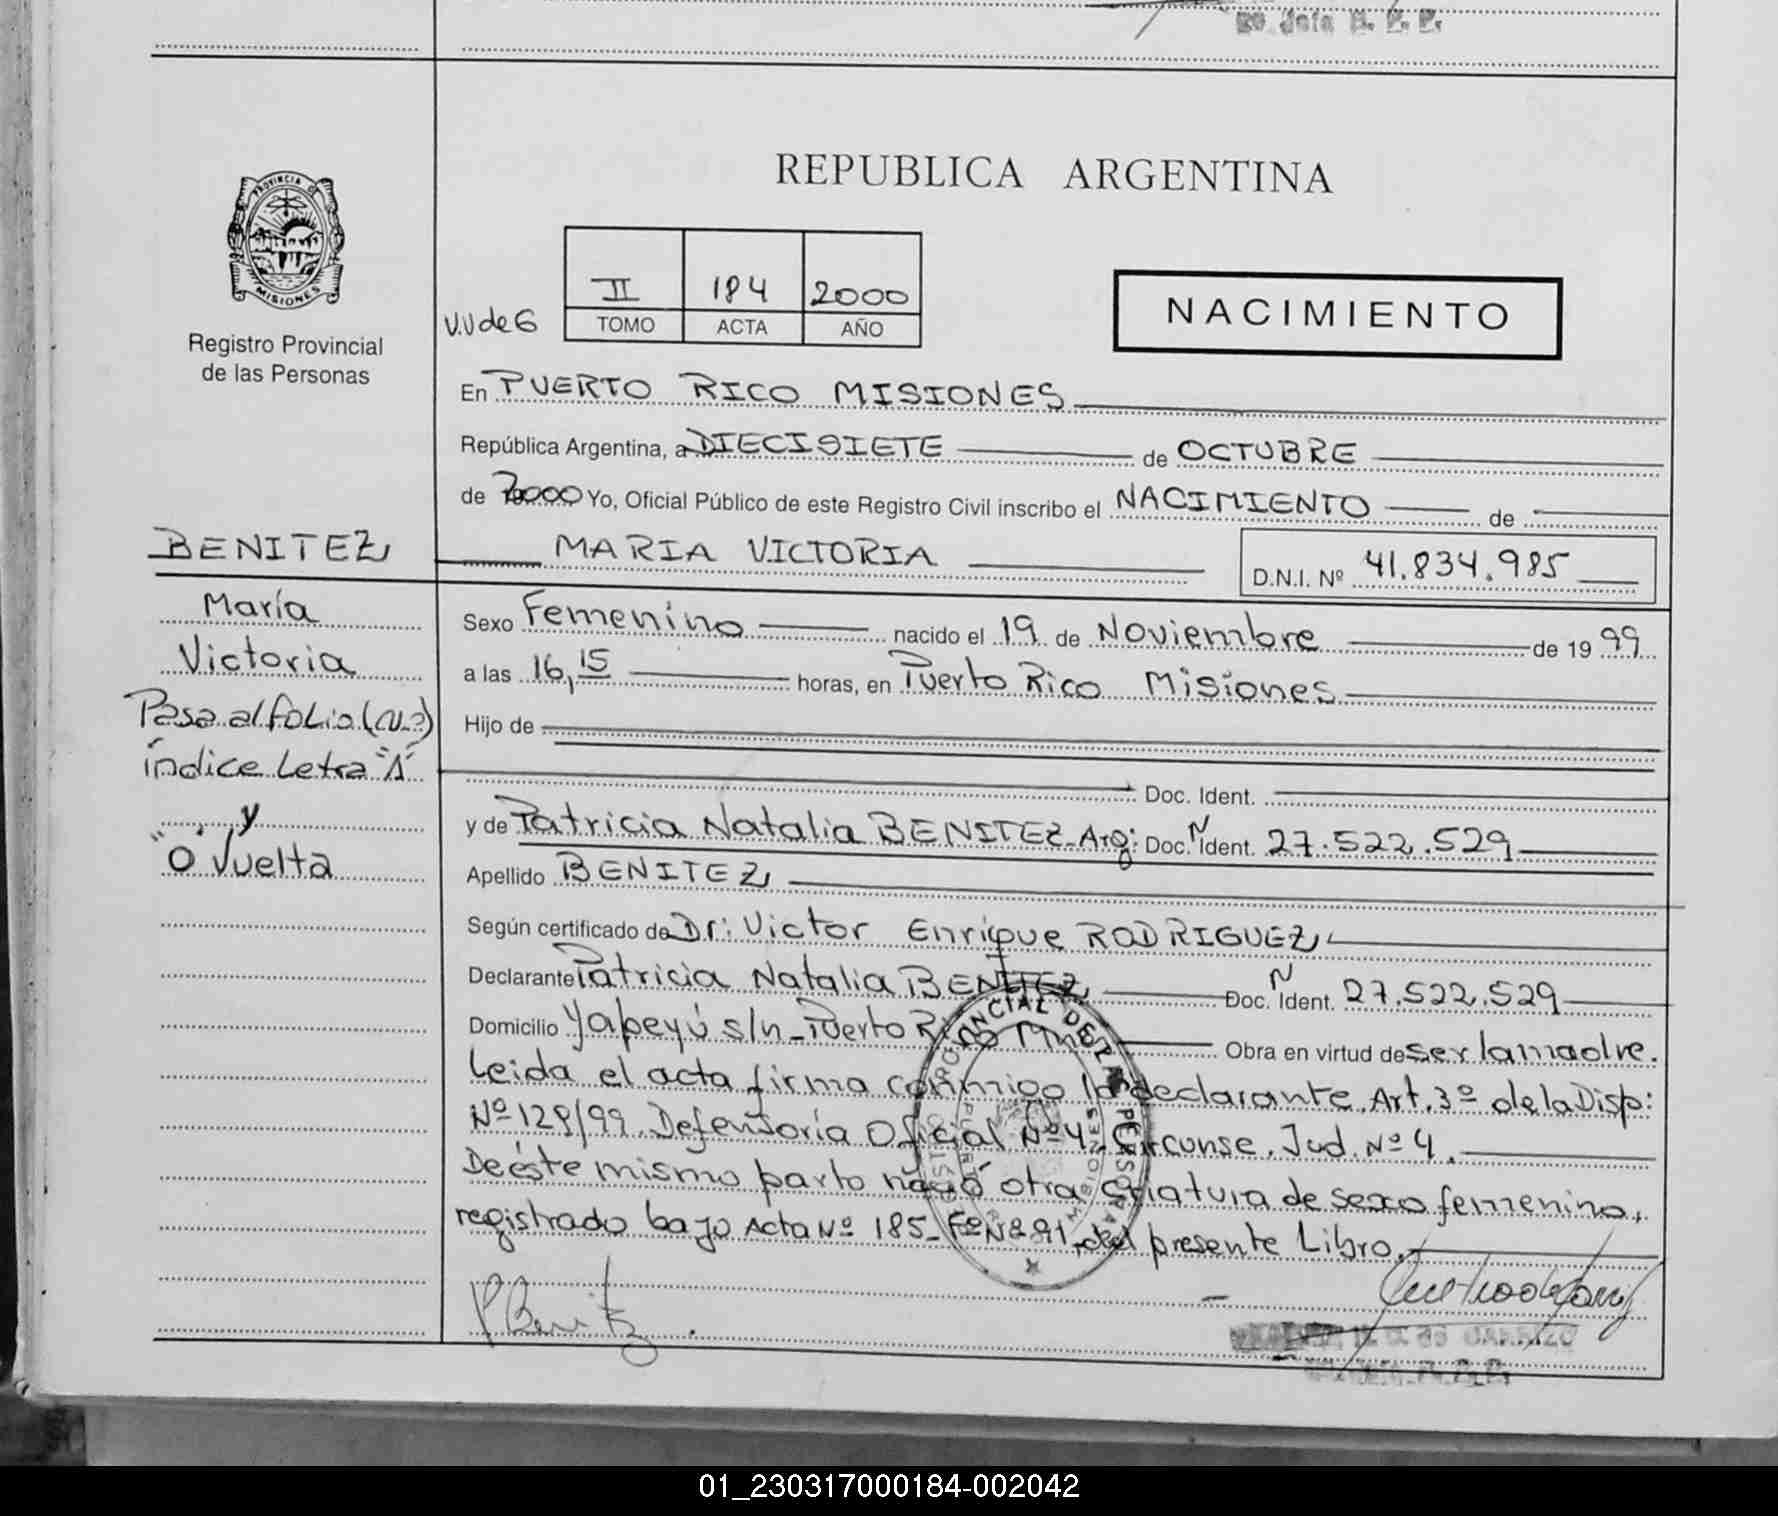 2º Jefe R. P. P.
PROVINCIA DE
MISIONES
Registro Provincial
de las Personas
REPUBLICA ARGENTINA
II 184 2000
TOMO ACTA AÑO
V.V de G
NACIMIENTO
En PUERTO RICO MISIONES
República Argentina, a DIECISIETE de OCTUBRE
de 2000 Yo, Oficial Público de este Registro Civil inscribo el NACIMIENTO de
MARIA VICTORIA D.N.I. Nº 41.834.985
Sexo Femenino nacido el 19 de Noviembre de 19 99
a las 16,15 horas, en Puerto Rico Misiones
Hijo de
Doc. Ident.
y de Patricia Natalia BENITEZ-Arg: Doc. N Ident. 27.522.529
Apellido BENITEZ
Según certificado de Dr: Victor Enrique RODRIGUEZ
Declarante Patricia Natalia BENITEZ Doc. N Ident. 27.522.529
Domicilio Yapeyú s/n - Puerto Rico Mnes Obra en virtud de ser la madre.
Leida el acta firma conmigo la declarante. Art. 3º de la Disp:
Nº 128/99. Defensoría Oficial Nº 4. Circunsc. Jud. Nº 4.
De éste mismo parto nació otra criatura de sexo femenino,
registrado bajo Acta Nº 185- Fº Nº 91 del presente Libro.
P Benitez
BENITEZ
María
Victoria
Pasa al folio
índice Letra "Ñ"
y
"O" Vuelta
01_230317000184-002042